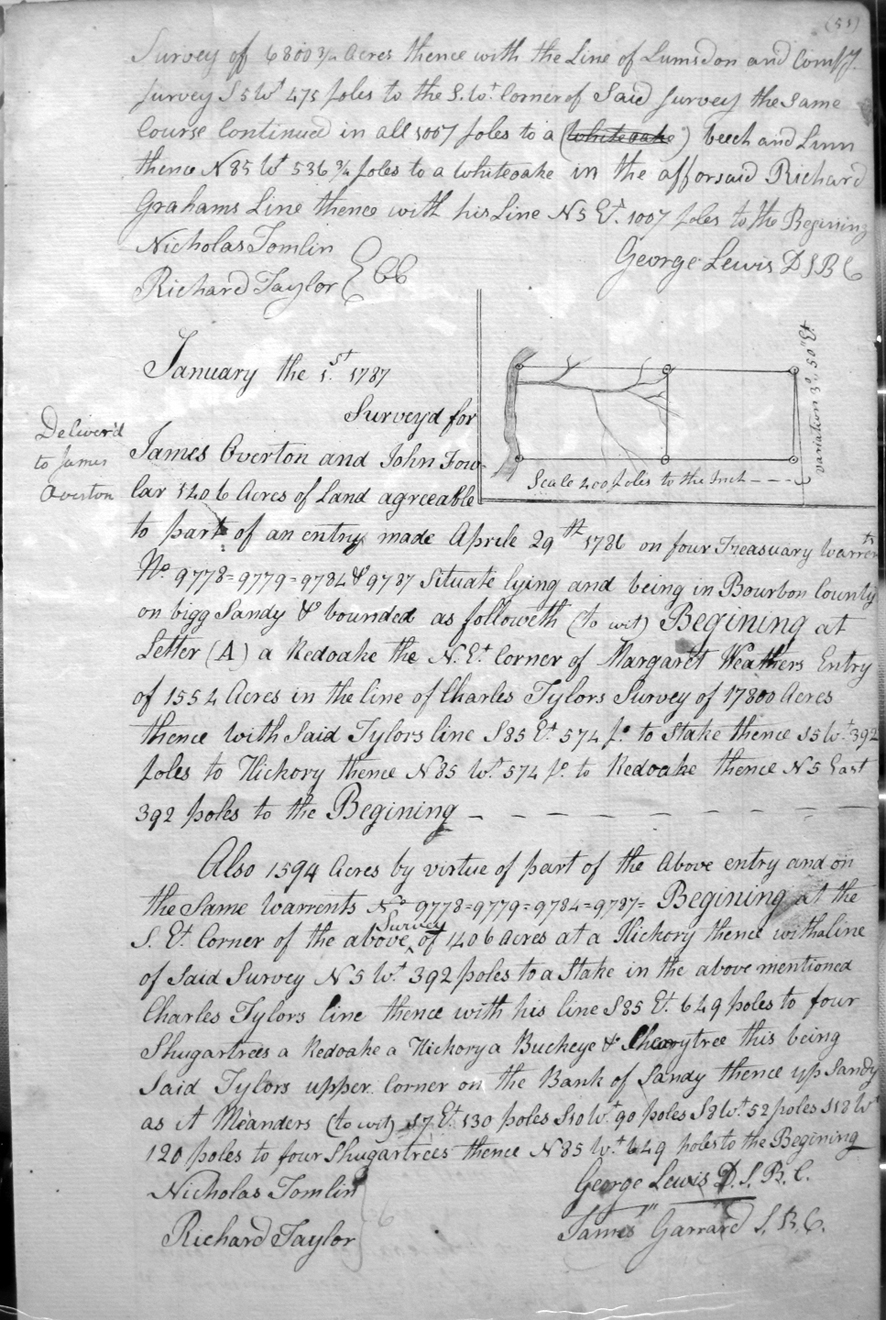 (51)
Survey of 6800 3/4 Acres thence with the Line of Lumsdon and Comp.y
Survey S 5 Wt 475 poles to the S. Wt Corner of Said Survey the Same
Course Continued in all 1007 poles to a (Whiteoake) beech and Linn
thence N 85 Wt 536 3/4 poles to a Whiteoake in the afforsaid Richard
Grahams Line thence with his Line N 5 Et 1007 poles to the Begining
Nicholas Tomlin
Richard Taylor } CC
George Lewis D S B C
January the 1st 1787
Survey'd for
James Overton and John Fow-
lar 1406 Acres of Land agreeable
Deliver'd
to James
Overton
Scale 400 poles to the Inch - - -
Variation 3°, 50" Et
to part of an entry made Aprile 29th 1786 on four Treasuary Warrents
No 9778=9779=9784 & 9787 Situate lying and being in Bourbon County
on bigg Sandy & bounded as followeth (to wit) Begining at
Letter (A) a Redoake the N. Et Corner of Margaret Weathers Entry
of 1554 Acres in the line of Charles Tylors Survey of 17800 Acres
thence with Said Tylors line S 85 Et 574 po to Stake thence S 5 Wt 392
poles to Hickory thence N 85 Wt 574 po to Redoake thence N 5 East
392 poles to the Begining - - - - - - -
Also 1594 Acres by virtue of part of the Above entry and on
the Same Warrents No 9778=9779=9784=9787= Begining at the
Survey
S. Et Corner of the above ^ of 1406 Acres at a Hickory thence with a line
of Said Survey N 5 Wt 392 poles to a Stake in the above mentioned
Charles Tylors line thence with his line S 85 Et. 649 poles to four
Shugartrees a Redoake a Hickory a Buckeye & Cherrytree this being
Said Tylors upper Corner on the Bank of Sandy thence up Sandy
as it Meanders (to wit) S 7 Et 130 poles S 10 Wt 90 poles S 2 Wt 52 poles S 12 Wt
120 poles to four Shugartrees thence N 85 Wt 649 poles to the Begining
Nicholas Tomlin
Richard Taylor
George Lewis D. S. B. C.
James Garrard S. B. C.